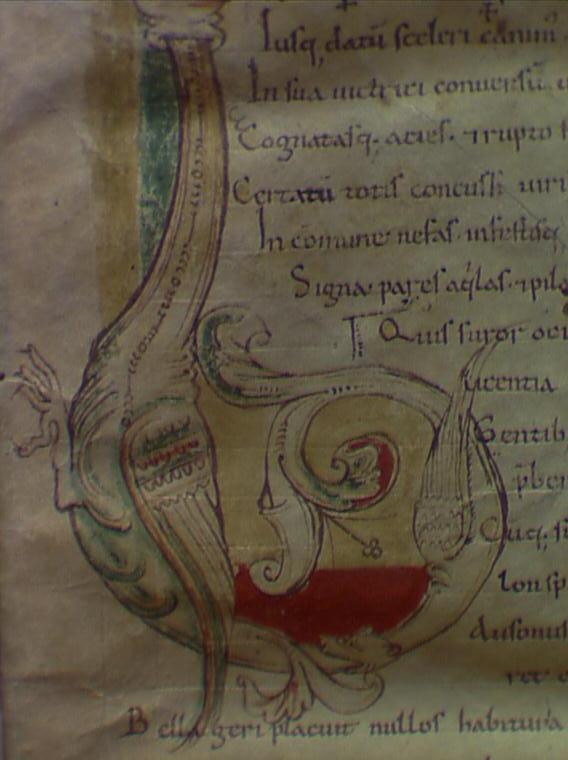 Iusq, datū sceleri canim᷒
In sua uictrici conuersū
Cognatasq. acies. & rupto
Certatū totis concussi uiri
In cōmune nefas. infestisq,
Signa. pares aq̇las. & pila
Quis furor o ci
licentia
Gentib
p̄ber
Cūq. su
Ausonius
Bella geri placuit nullos habitura